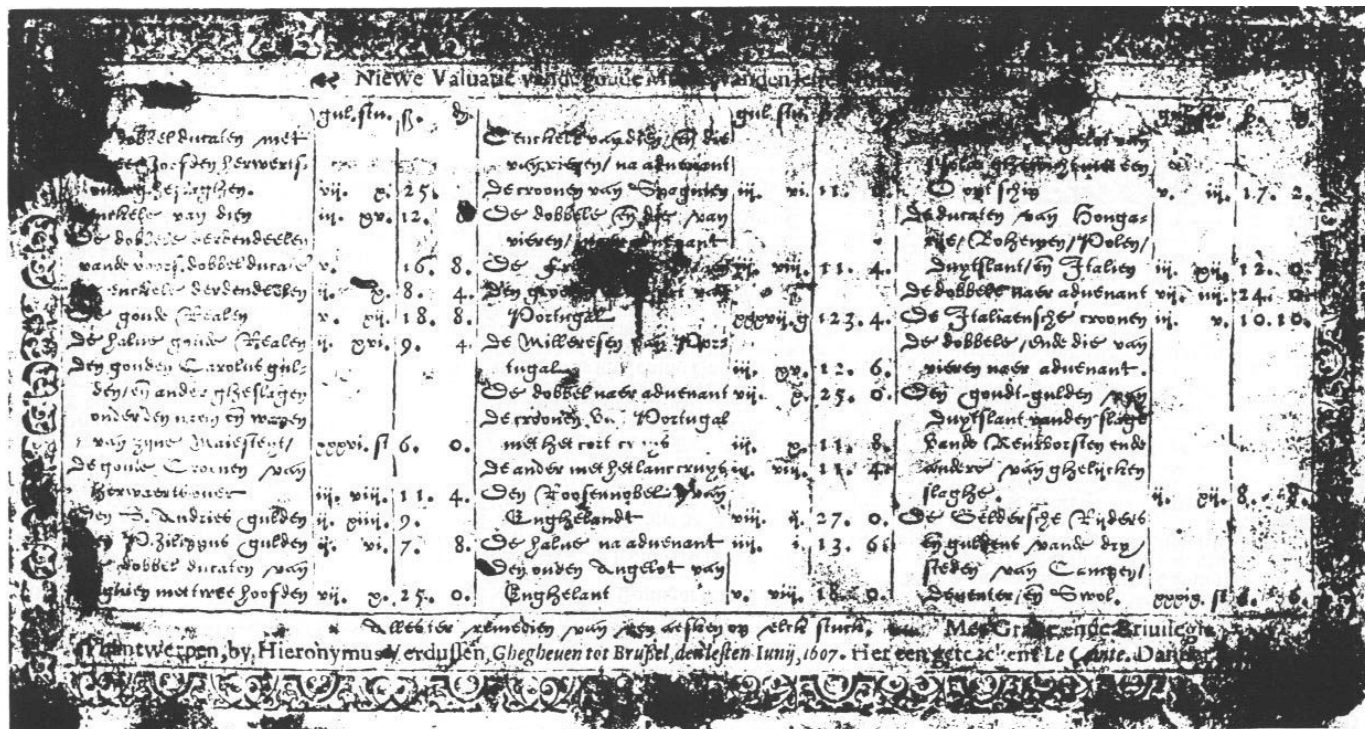 Niewe Valuatie vande goude
gul. stu. ß. d.
dobbel ducaten met
hoofden herwerts-
gheslaghen. vij. x. 25.
enckele van dien iij. xv. 12.
De dobbele derdendeelen
vande voors. dobbel ducaten v. 16. 8.
enckele derdendeelen ij. x. 8. 4.
goude Realen v. xij. 18. 8.
De halue goude Realen ij. xvi. 9. 4.
Den gouden Carolus gul-
den, en ander gheslagen
onder den naem en wapen
van zijne Maiesteyt, xxxvi. st 6. 0.
De goude Croonen van
herwaertsouer iij. viij. 11. 4.
Den S. Andries gulden ij. xiiij. 9.
Philippus gulden ij. vi. 7. 8.
dobbel ducaten van
met twee hoofden vij. x. 25. 0.
gul. stu.
D'enckele van dien, en die
van vieren, na aduenant
De croonen van Spagnien iij. vi. 11.
De dobbele en die van
vieren, naer aduenant
De viij. 11. 4.
Den van
Portugal xxxvij. g 123. 4.
De Milleresen van Por-
tugal iij. xv. 12. 6.
De dobbel naer aduenant vij. x. 25. 0.
De croonen van Portugal
met het cort cruys iij. x. 11. 8.
De ander met het lanc cruys iij. viij. 11. 4.
Den Roosennobel van
Enghelandt viij. ij. 27. 0.
De halue na aduenant iiij. i. 13. 6.
Den ouden Angelot van
Enghelant v. viij. 18. 0.
van
een
schip v. iij. 17. 2.
De ducaten van Honga-
rije, Bohemen, Polen,
Duytslant, en Italien iij. xij. 12. 0.
De dobbele naer aduenant vij. iiij. 24. 0.
De Italiaensche croonen iij. v. 10. 10.
De dobbele, ende die van
vieren naer aduenant.
Den goudt-gulden van
Duytslant vanden slage
vande Keurvorsten ende
andere van ghelijcken
slaghe. ij. xij. 8. 8.
De Geldersche Rijders
en guldens vande dry
steden van Campen,
Deuenter, en Swol. xxxix. st 6. 6.
Alles ter remedien van een aesken op elck stuck. Met Gratie ende Priuilegie
Thantwerpen, by Hieronymus Verdussen, Ghegheuen tot Brussel, den lesten Iunij, 1607. Het een geteeckent Le Comte.